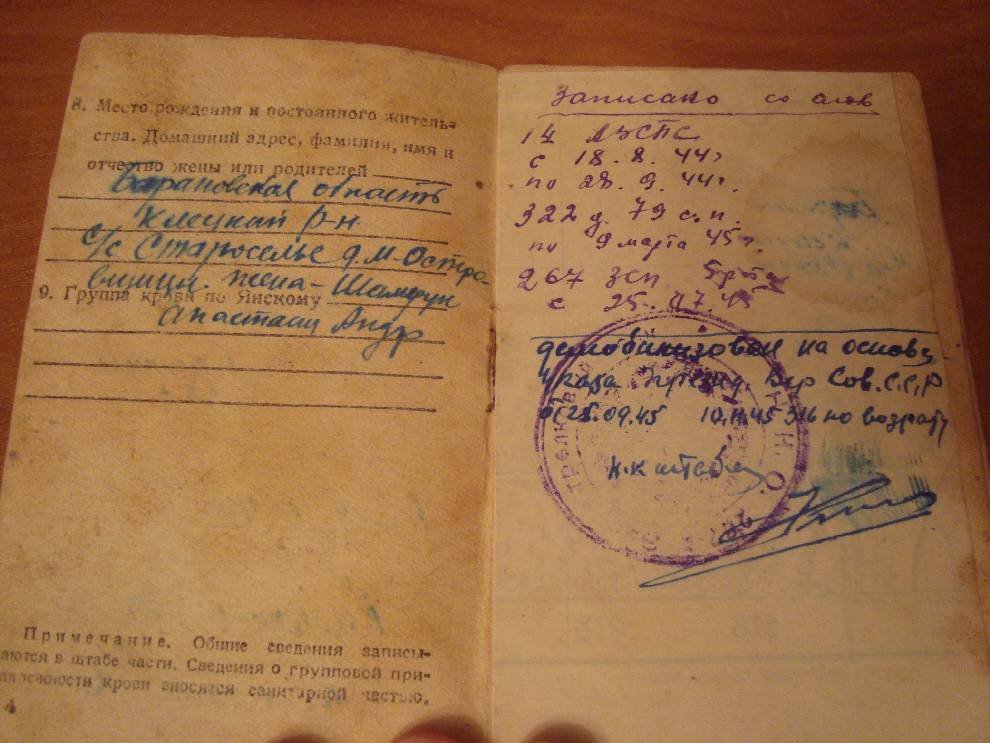 8. Место рождения и постоянного житель-
ства. Домашний адрес, фамилия, имя и
отчество жены или родителей
Барановская область
Клецкий р-н
с/с Староселье д. М-Остро-
вищи. жена - Шамфун
9. Группа крови по Янскому
Анастаси Андр
Примечание. Общие сведения записы-
ваются в штабе части. Сведения о групповой при-
надлежности крови вносятся санитарной частью.
4
Записано со слов
14 АЗСП
с 18. 8. 44г
по 28. 9. 44г.
322 д. 79 с.п.
по 9 марта 45г.
267 ЗСП
с 25. 45
демобилизован на основ
Указа Презид. Вер Сов. С.С.Р
от 25.09.45 10.11.45 по возрасту
Н.К.О.
Н-к штаба